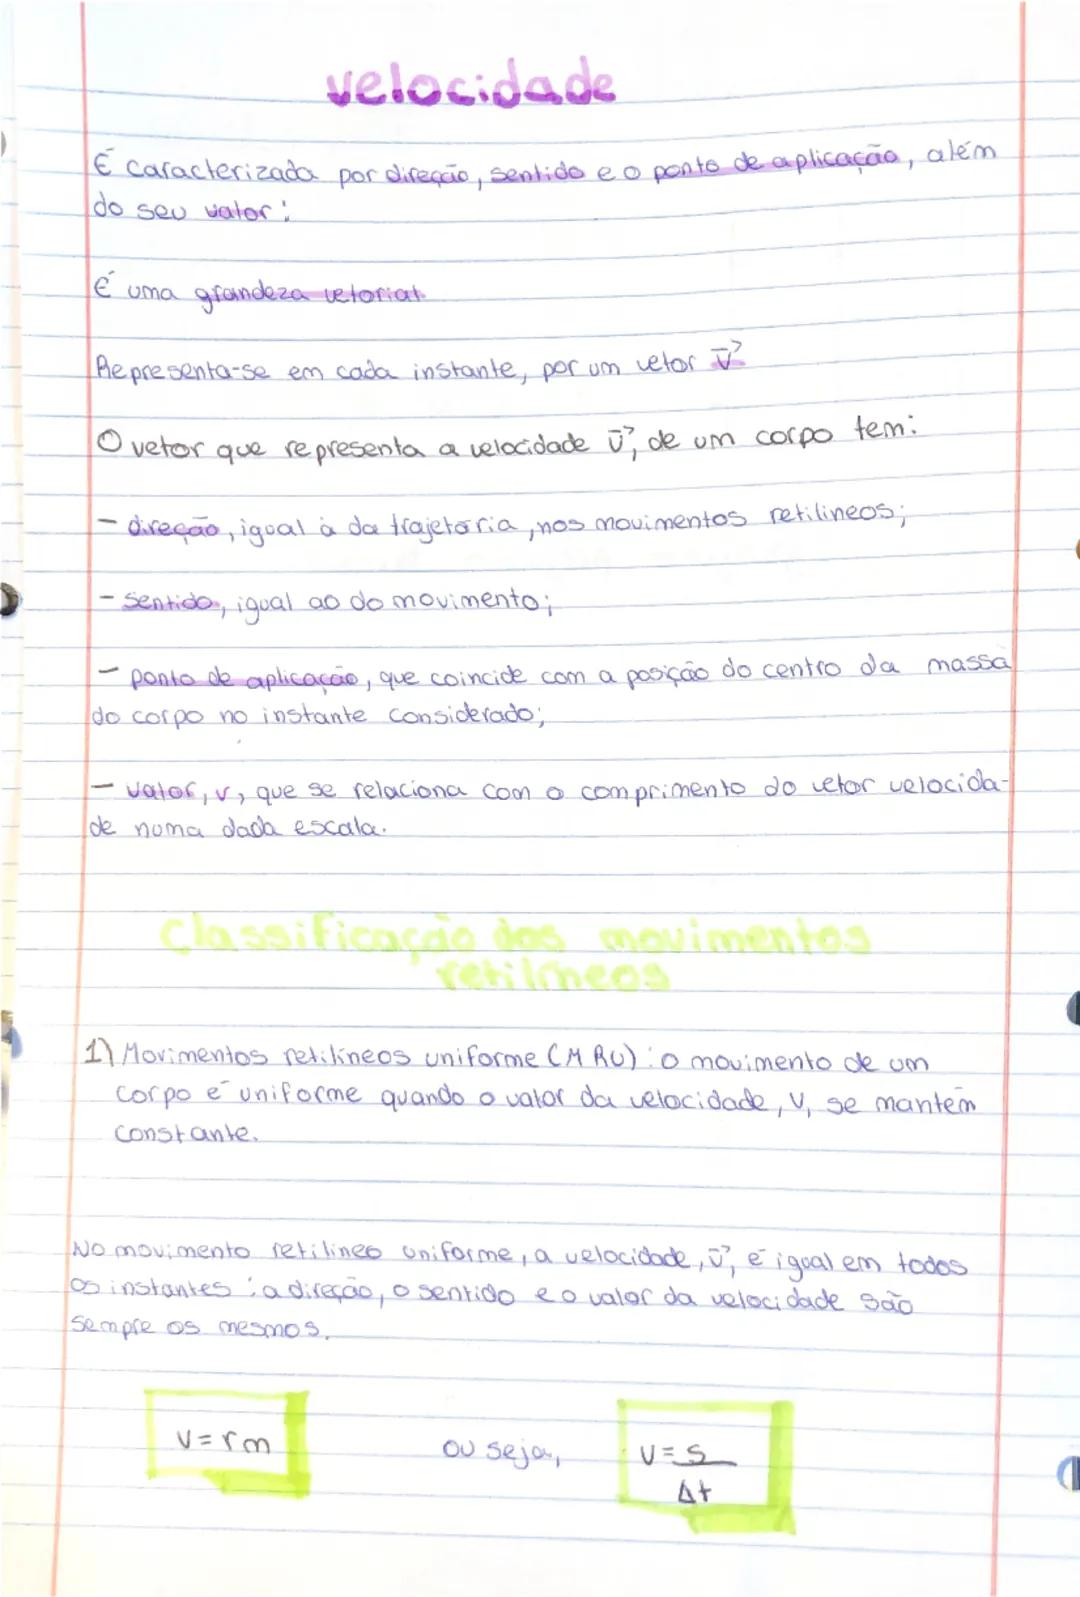 velocidade
É caracterizada por direção, sentido e o ponto de aplicação, além
do seu valor:
É uma grandeza vetorial.
Representa-se em cada instante, por um vetor v⃗
O vetor que representa a velocidade v⃗, de um corpo tem:
- direção, igual à da trajetória, nos movimentos retilineos;
- sentido, igual ao do movimento;
- ponto de aplicação, que coincide com a posição do centro da massa
do corpo no instante considerado;
- valor, v, que se relaciona com o comprimento do vetor velocida-
de numa dada escala.
Classificação dos movimentos
retilíneos
1) Movimentos retilíneos uniforme (MRU): o movimento de um
corpo é uniforme quando o valor da velocidade, v, se mantém
constante.
No movimento retilineo uniforme, a velocidade, v⃗, é igual em todos
os instantes: a direção, o sentido e o valor da velocidade são
sempre os mesmos.
v = rm ou seja, v = s
Δt